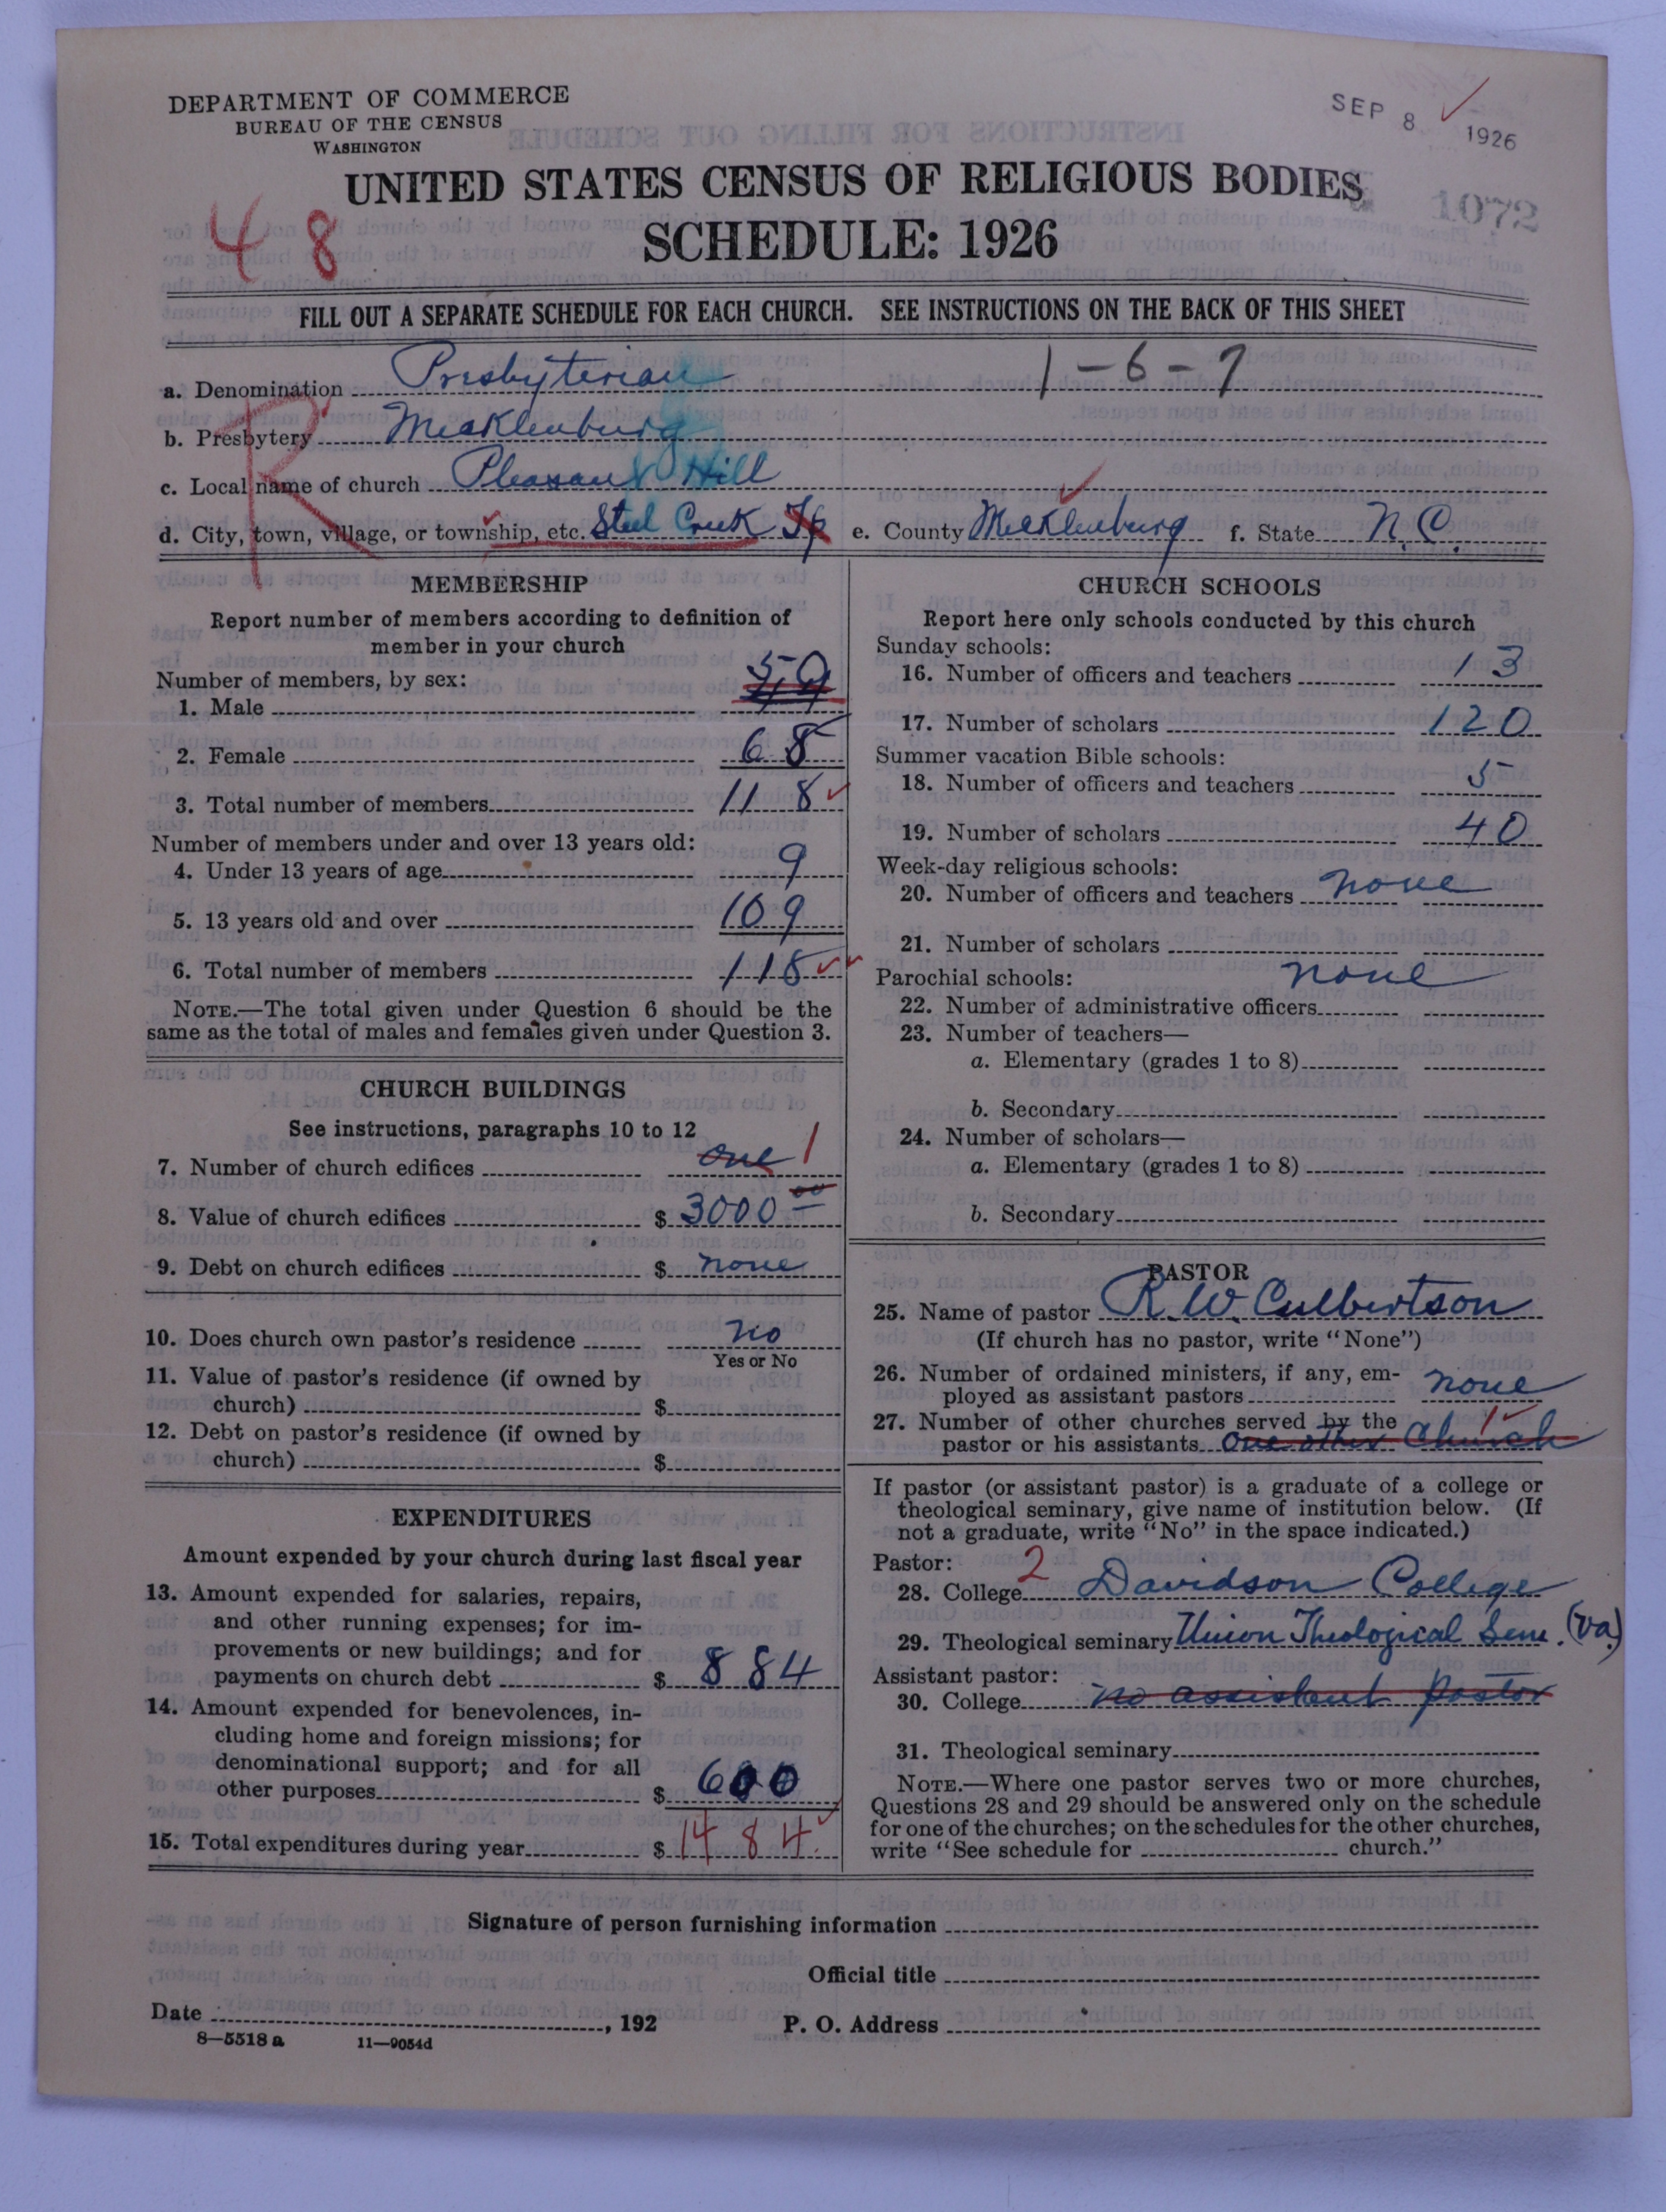 DEPARTMENT OF COMMERCE
BUREAU OF THE CENSUS
WASHINGTON
SEP 8 1926
UNITED STATES CENSUS OF RELIGIOUS BODIES
1072
48
SCHEDULE: 1926
FILL OUT A SEPARATE SCHEDULE FOR EACH CHURCH. SEE INSTRUCTIONS ON THE BACK OF THIS SHEET
a. Denomination Presbyterian 1-6-7
b. Presbytery Mecklenburg
R
c. Local name of church Pleasant Hill
d. City, town, village, or township, etc. Steel Creek Tp e. County Mecklenburg f. State N.C.
MEMBERSHIP
Report number of members according to definition of
member in your church
Number of members, by sex:
1. Male 50
2. Female 68
3. Total number of members 118
Number of members under and over 13 years old:
4. Under 13 years of age 9
5. 13 years old and over 109
6. Total number of members 118
NOTE.—The total given under Question 6 should be the
same as the total of males and females given under Question 3.
CHURCH BUILDINGS
See instructions, paragraphs 10 to 12
7. Number of church edifices one 1
8. Value of church edifices $ 3000 00
9. Debt on church edifices $ none
10. Does church own pastor's residence no
Yes or No
11. Value of pastor's residence (if owned by
church) $
12. Debt on pastor's residence (if owned by
church) $
EXPENDITURES
Amount expended by your church during last fiscal year
13. Amount expended for salaries, repairs,
and other running expenses; for im-
provements or new buildings; and for
payments on church debt $ 884
14. Amount expended for benevolences, in-
cluding home and foreign missions; for
denominational support; and for all
other purposes $ 600
15. Total expenditures during year $ 1484
CHURCH SCHOOLS
Report here only schools conducted by this church
Sunday schools:
16. Number of officers and teachers 13
17. Number of scholars 120
Summer vacation Bible schools:
18. Number of officers and teachers 5
19. Number of scholars 40
Week-day religious schools:
20. Number of officers and teachers none
21. Number of scholars
Parochial schools: none
22. Number of administrative officers
23. Number of teachers—
a. Elementary (grades 1 to 8)
b. Secondary
24. Number of scholars—
a. Elementary (grades 1 to 8)
b. Secondary
PASTOR
25. Name of pastor R. W. Culbertson
(If church has no pastor, write "None")
26. Number of ordained ministers, if any, em-
ployed as assistant pastors none
27. Number of other churches served by the 1
pastor or his assistants One other Church
If pastor (or assistant pastor) is a graduate of a college or
theological seminary, give name of institution below. (If
not a graduate, write "No" in the space indicated.)
Pastor: 2
28. College Davidson College
29. Theological seminary Union Theological Sem. (Va.)
Assistant pastor:
30. College no assistant pastor
31. Theological seminary
NOTE.—Where one pastor serves two or more churches,
Questions 28 and 29 should be answered only on the schedule
for one of the churches; on the schedules for the other churches,
write "See schedule for church."
Signature of person furnishing information
Official title
Date , 192 P. O. Address
8—5518 a 11—9054d